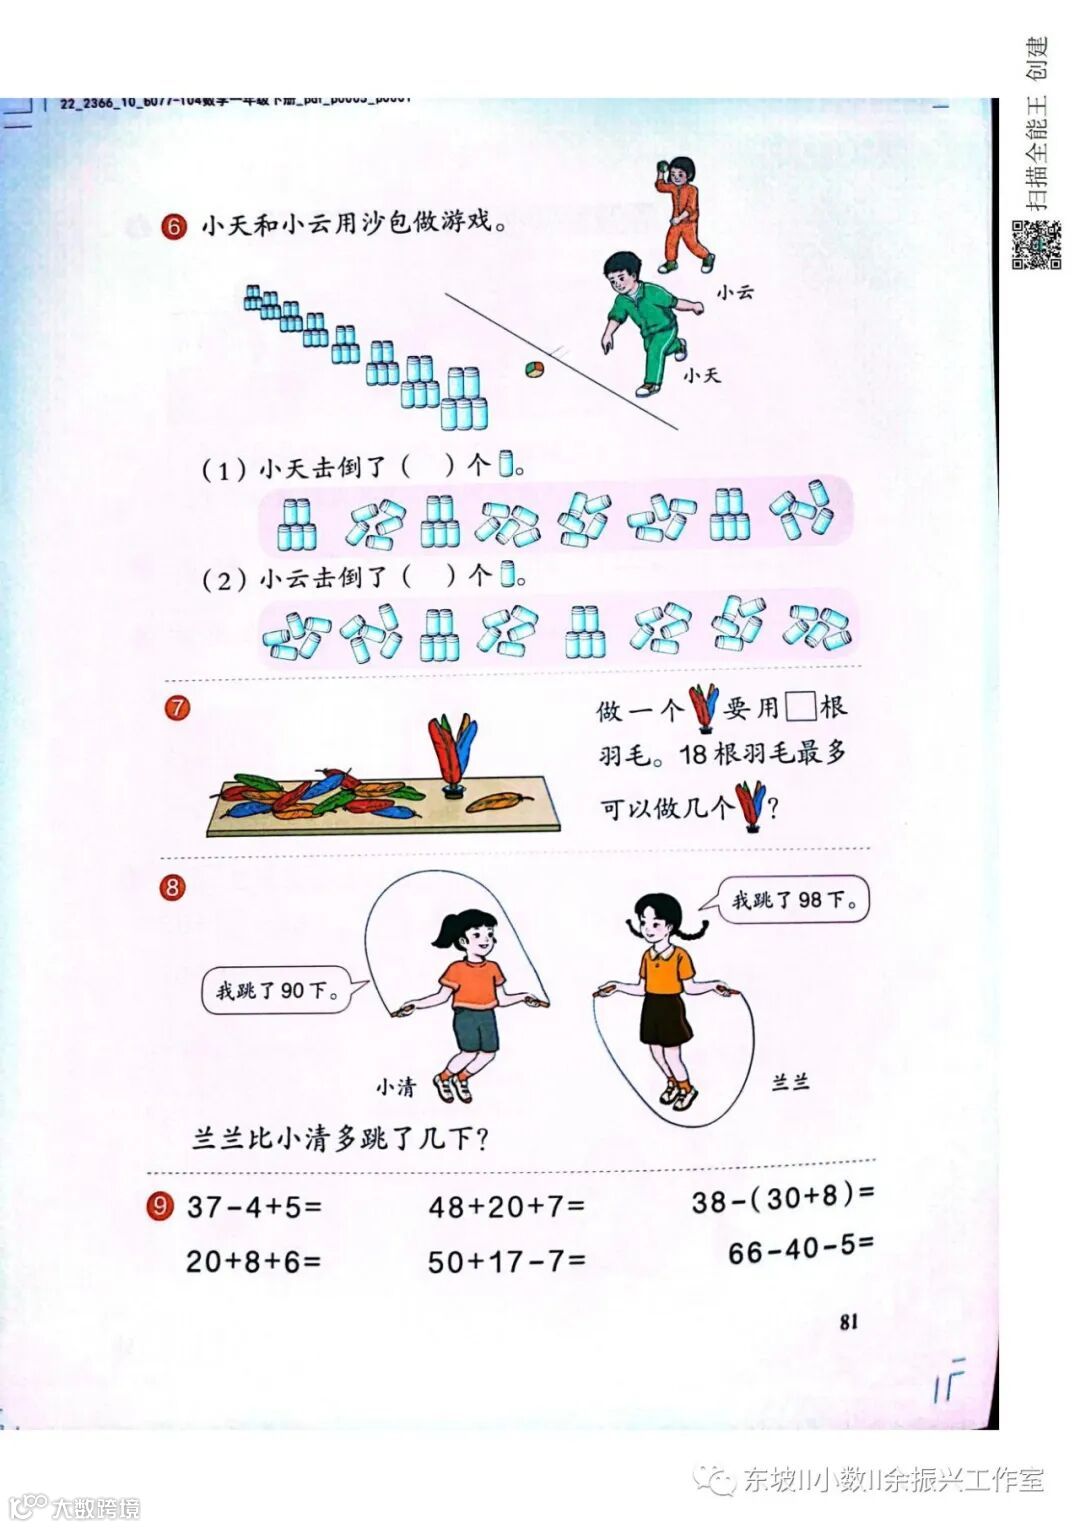 扫描全能王 创建
22_2366_10_6077-104数学一年级下册_pdf_p0005_p0001
6 小天和小云用沙包做游戏。
小云
小天
(1)小天击倒了( )个 。
(2)小云击倒了( )个 。
7
做一个 要用□根
羽毛。18根羽毛最多
可以做几个 ?
8
我跳了98下。
我跳了90下。
小清
兰兰
兰兰比小清多跳了几下?
9 37-4+5= 48+20+7= 38-(30+8)=
20+8+6= 50+17-7= 66-40-5=
81
东坡II小数II余振兴工作室
大数跨境